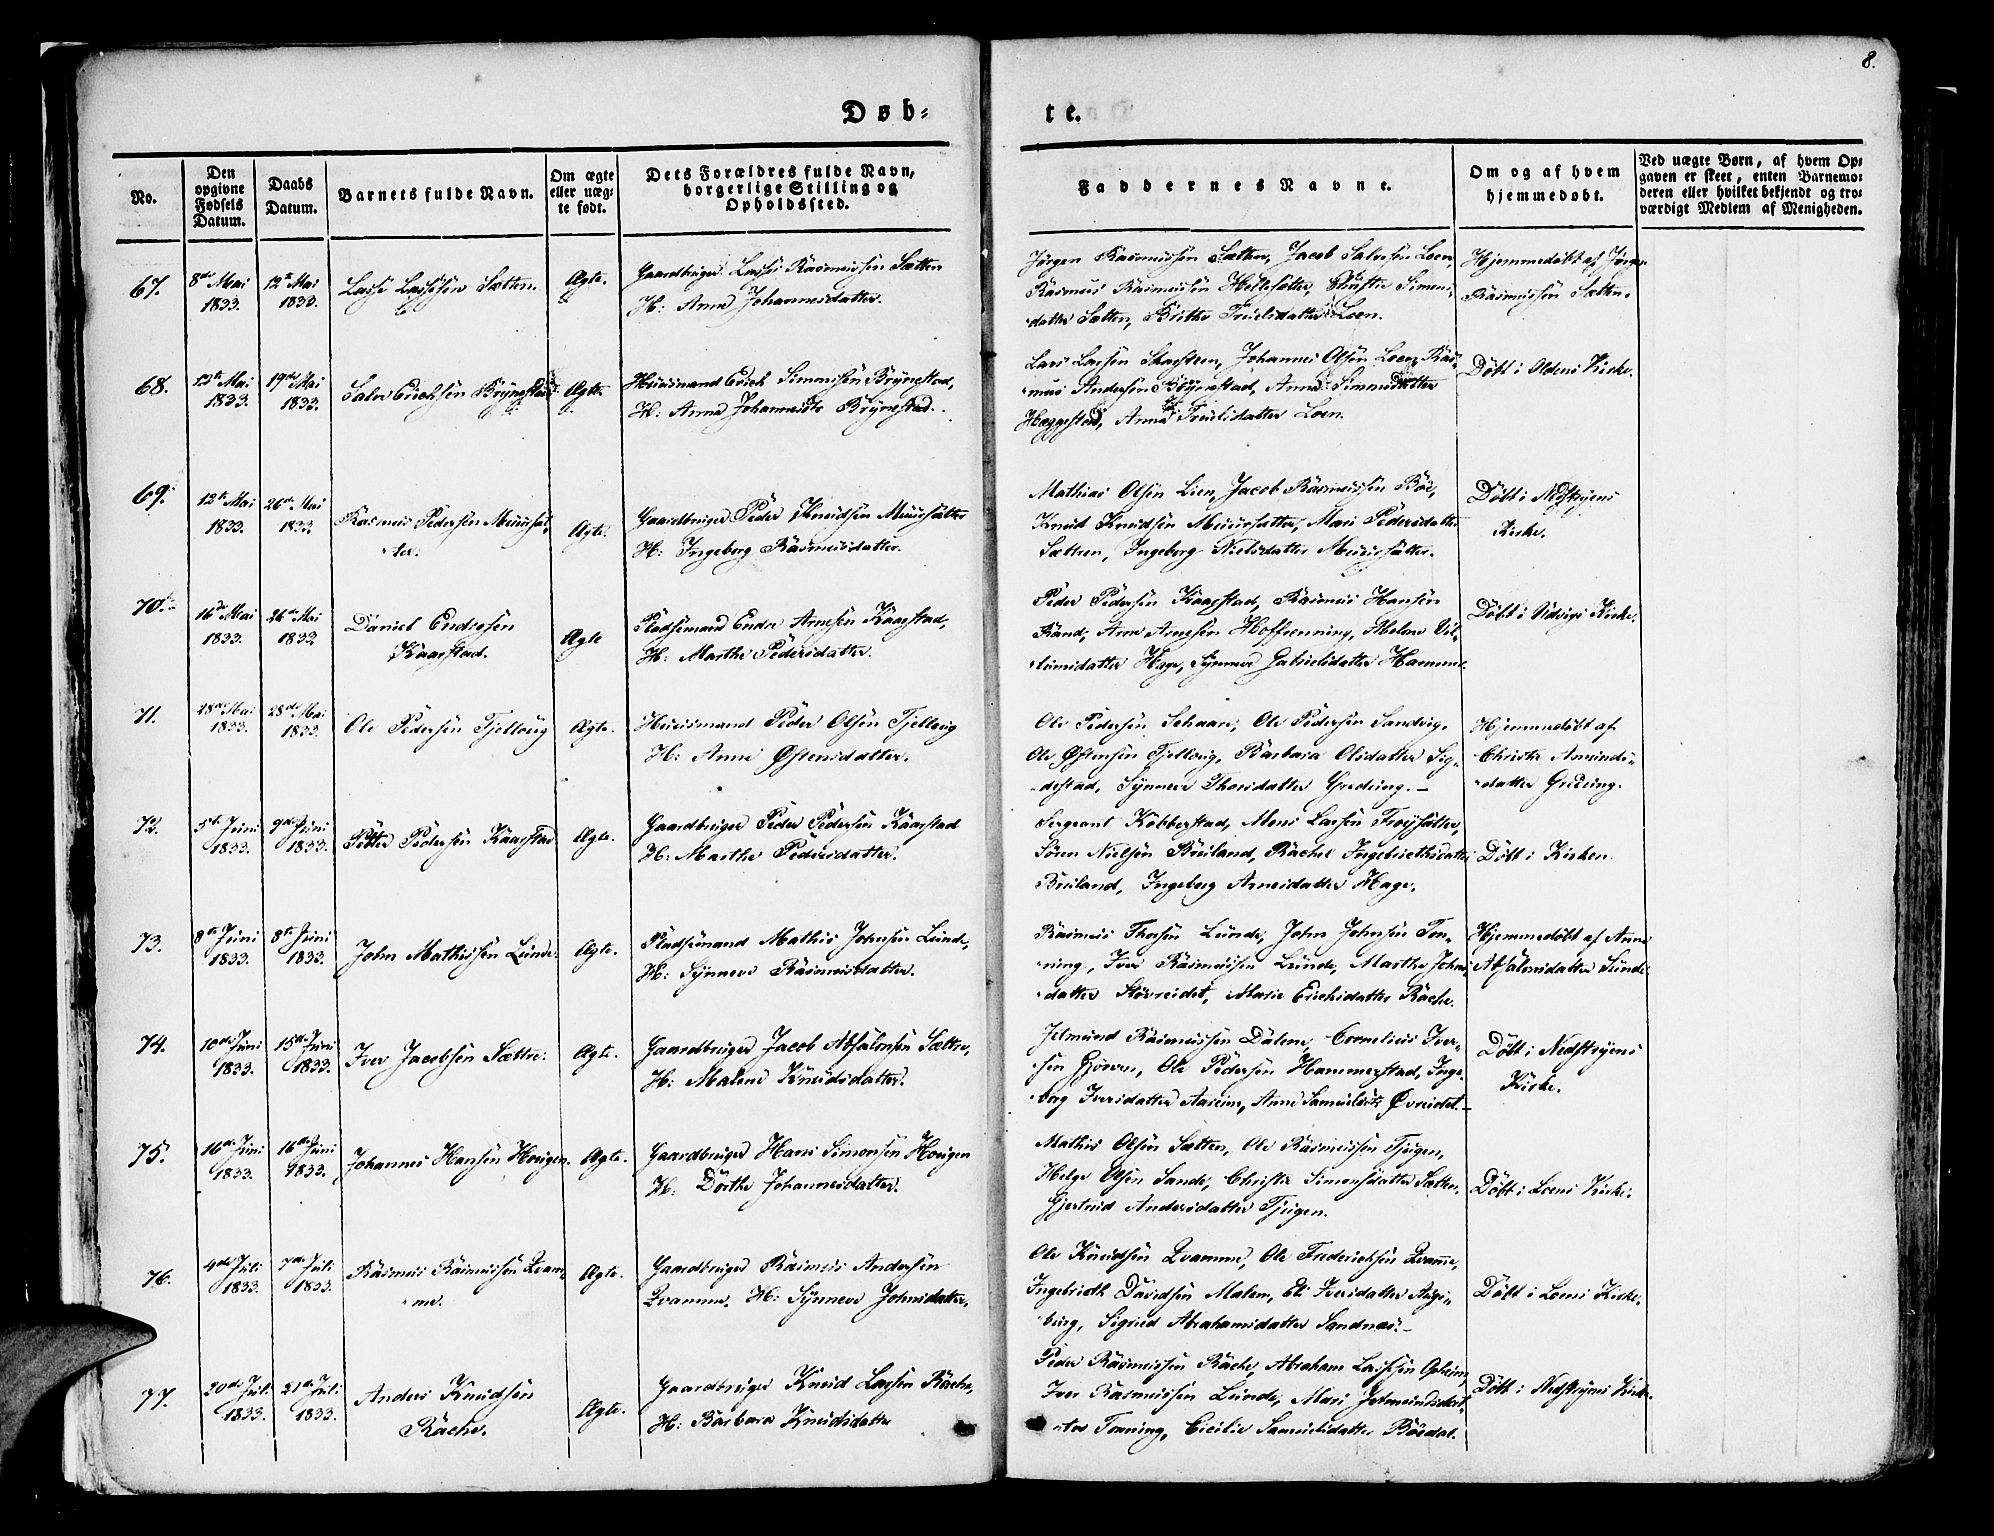 8.
Døb-
te.
No.
Den opgivne Fødsels Datum.
Daabs Datum.
Barnets fulde Navn.
Om ægte eller uæg- te født.
Dets Forældres fulde Navn, borgerlige Stilling og Opholdssted.
Faddernes Navne.
Om og af hvem hjemmedøbt.
Ved uægte Børn, af hvem Op- gaven er skeet, enten Barnemo- deren eller hvilket bekjendt og tro- værdigt Medlem af Menigheden.
67.
8de Mai 1833.
12te Mai 1833.
Lasse Lassesen Sætten.
Ægte.
Gaardbruger Lasse Rasmussen Sætten
H: Anne Johannesdatter.
Jörgen Rasmussen Sætten, Jacob Salvesen Loen,
Rasmus Rasmussen Hellesætter, Christie Simens-
datter Sætten, Brithe Truelsdatter Loen.
Hjemmedöbt af Jörgen
Rasmussen Sætten.
68.
12te Mai 1833.
19de Mai 1833.
Salve Erichsen Brynestad
Ægte.
Huusmand Erich Simonsen Brynestad,
H: Anne Johannesdtr Brynestad.
Lars Larsen Skaestren, Johannes Olsen Loen, Ras-
mus Andersen Brynestad, Anne Simensdatter
Heggestad, Anne Truelsdatter Loen.
Döbt i Oldens Kirke.
69.
12te Mai 1833.
26de Mai 1833.
Rasmus Pedersen Muursæt-
ter.
Ægte.
Gaardbruger Peder Knudsen Muursætter
H: Ingeborg Rasmusdatter.
Mathias Olsen Lien, Jacob Rasmussen Böe,
Knud Knudsen Muursætter, Mari Pedersdatter
Sættren, Ingeborg Nielsdatter Muursætter.
Döbt i Nedstryens
Kirke.
70.
16de Mai 1833.
26de Mai 1833
Daniel Endresen
Kaarstad.
Ægte
Pladsemand Endre Arnesen Kaarstad,
H: Marthe Pedersdatter.
Peder Pedersen Kaarstad, Rasmus Hansen
Rand, Arne Arnesen Hoffrenning, Abelone Vil-
lumsdatter Hage, Synneve Gabrielsdatter Hamme.
Döbt i Udvigs Kirke.
71.
28de Mai 1833.
28de Mai 1833.
Ole Pedersen Tjelloug
Ægte.
Huusmand Peder Olsen Tjelloug
H: Anne Østensdatter.
Ole Pedersen Schaare, Ole Pedersen Sandvig,
Ole Østensen Tjelloug, Barbara Olsdatter Sig-
destad, Synneve Thorsdatter Greding.
Hjemmedöbt af
Christie Amunds-
datter Greding.
72.
5te Juni 1833.
9de Juni 1833.
Petter Pedersen Kaarstad
Ægte.
Gaardbruger Peder Pedersen Kaarstad
H: Marthe Pedersdatter.
Sergeant Kobberstad, Mons Larsen Froysætter,
Sören Nielsen Breiland, Rachel Ingebrethsdatter
Breiland, Ingeborg Arnesdatter Hage.
Döbt i Kirken.
73.
8te Juni 1833.
8te Juni 1833.
John Mathissen Lunde.
Ægte.
Pladsemand Mathis Johnsen Lunde,
H: Synneve Rasmusdatter.
Rasmus Thorsen Lunde, John Johnsen Ton-
ning, Iver Rasmussen Lunde, Marthe Johns-
datter Storeidet, Marie Erichsdatter Rache.
Hjemmedöbt af Anne
Absalonsdatter Lunde
74.
10de Juni 1833.
15de Juni 1833.
Iver Jacobsen Sættre.
Ægte.
Gaardbruger Jacob Absalonsen Sættre,
H: Malene Knudsdatter.
Jetmund Rasmussen Dalene, Cornelius Iver-
sen Gjörven, Ole Pedersen Hammerstad, Inge-
borg Iversdatter Aareim, Anne Samuelsdtr Øvreidet.
Döbt i Nedstryens
Kirke.
75.
16de Juni 1833.
16de Juni 1833.
Johannes Hansen Hougen.
Ægte.
Gaardbruger Hans Simonsen Hougen
H: Dorthe Johannesdatter.
Mathis Olsen Sætten, Ole Rasmussen Tjugen,
Helge Olsen Sande, Christie Simonsdatter Sætten,
Gjertrud Andersdatter Tjugen.
Döbt i Loens Kirke.
76.
4de Juli 1833.
7de Juli 1833.
Rasmus Rasmussen Qvam-
me.
Ægte.
Gaardbruger Rasmus Andersen
Qvamme, H: Synneve Johnsdatter.
Ole Knudsen Qvamme, Ole Friderichsen Qvamme,
Ingebrigth Davidsen Malem, Eli Iversdatter Augs-
burg, Sigrid Abrahamsdatter Sandnæs.
Döbt i Loens Kirke.
77.
20de Juli 1833.
21de Juli 1833.
Anders Knudsen
Rache.
Ægte.
Gaardbruger Knud Larsen Rache,
H: Barbara Knudsdatter
Peder Rasmussen Rache, Abraham Lassesen Opheim,
Iver Rasmussen Lunde, Mari Jetmundsdat-
ter Tonning, Cicilie Samuelsdatter Böedal.
Döbt i Nedstryens Kirke.